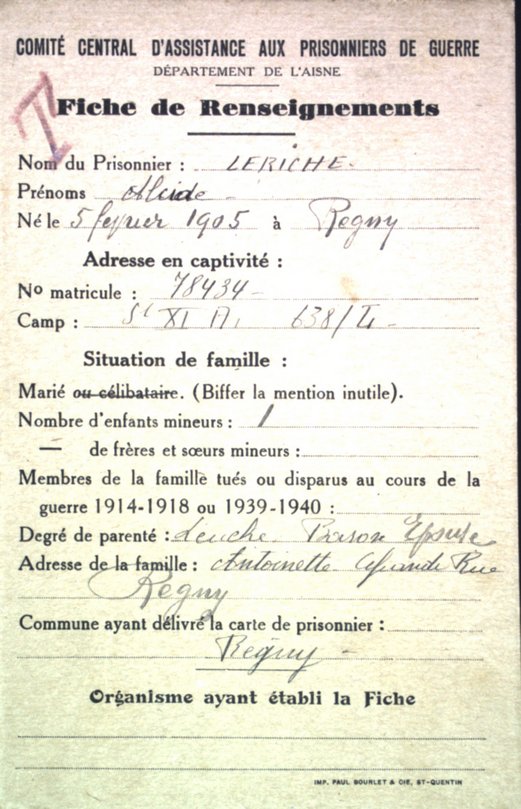 COMITÉ CENTRAL D'ASSISTANCE AUX PRISONNIERS DE GUERRE
DÉPARTEMENT DE L'AISNE
T
Fiche de Renseignements
Nom du Prisonnier : LERICHE
Prénoms Alcide
Né le 5 février 1905 à Regny
Adresse en captivité :
No matricule : 78434
Camp : St XI A. 638/
Situation de famille :
Marié ou célibataire. (Biffer la mention inutile).
Nombre d'enfants mineurs : 1
— de frères et sœurs mineurs :
Membres de la famille tués ou disparus au cours de la
guerre 1914-1918 ou 1939-1940 :
Degré de parenté :
Adresse de la famille : Antoinette Grande Rue
Regny
Commune ayant délivré la carte de prisonnier :
Regny
Organisme ayant établi la Fiche
IMP. PAUL BOURLET & CIE, ST-QUENTIN